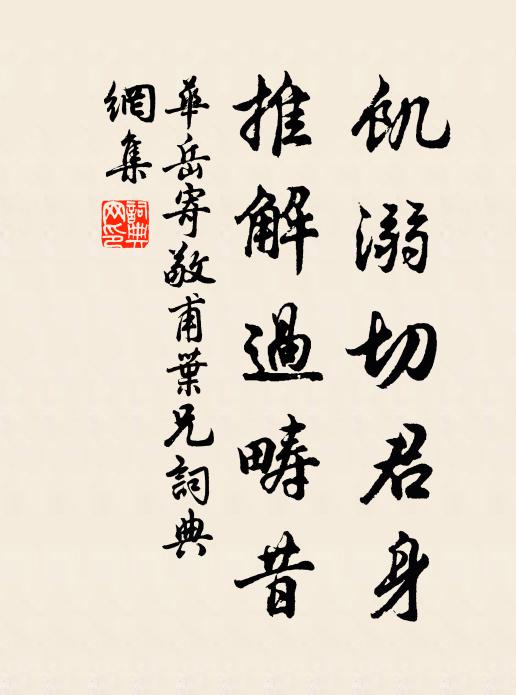 飢溺切君身
推解過疇昔
華岳寄敬甫葉兄詞典
網集
詞典
网印